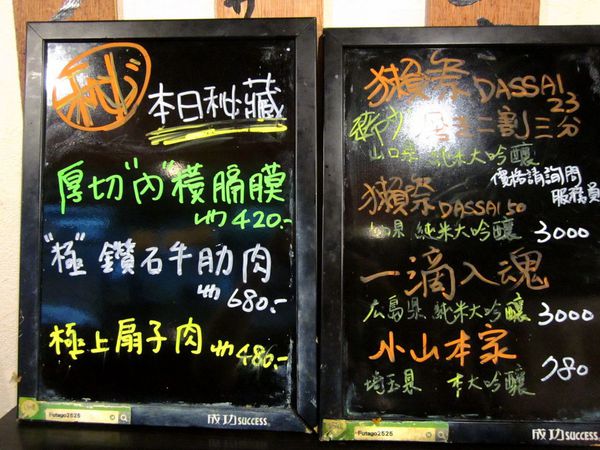 秘
本日秘藏
厚切"內"橫膈膜
420.-
"極"鑽石牛肋肉
680.-
極上扇子肉
480.-
Futago2525
成功 SUCCESS
獺祭 DASSAI 23
二割三分
山口県 純米大吟釀
價格請詢問
服務員
獺祭 DASSAI 50
純米大吟釀 3000
一滴入魂
広島県 純米大吟釀 3000
小山本家
埼玉県 本大吟釀 780
Futago2525
成功 SUCCESS